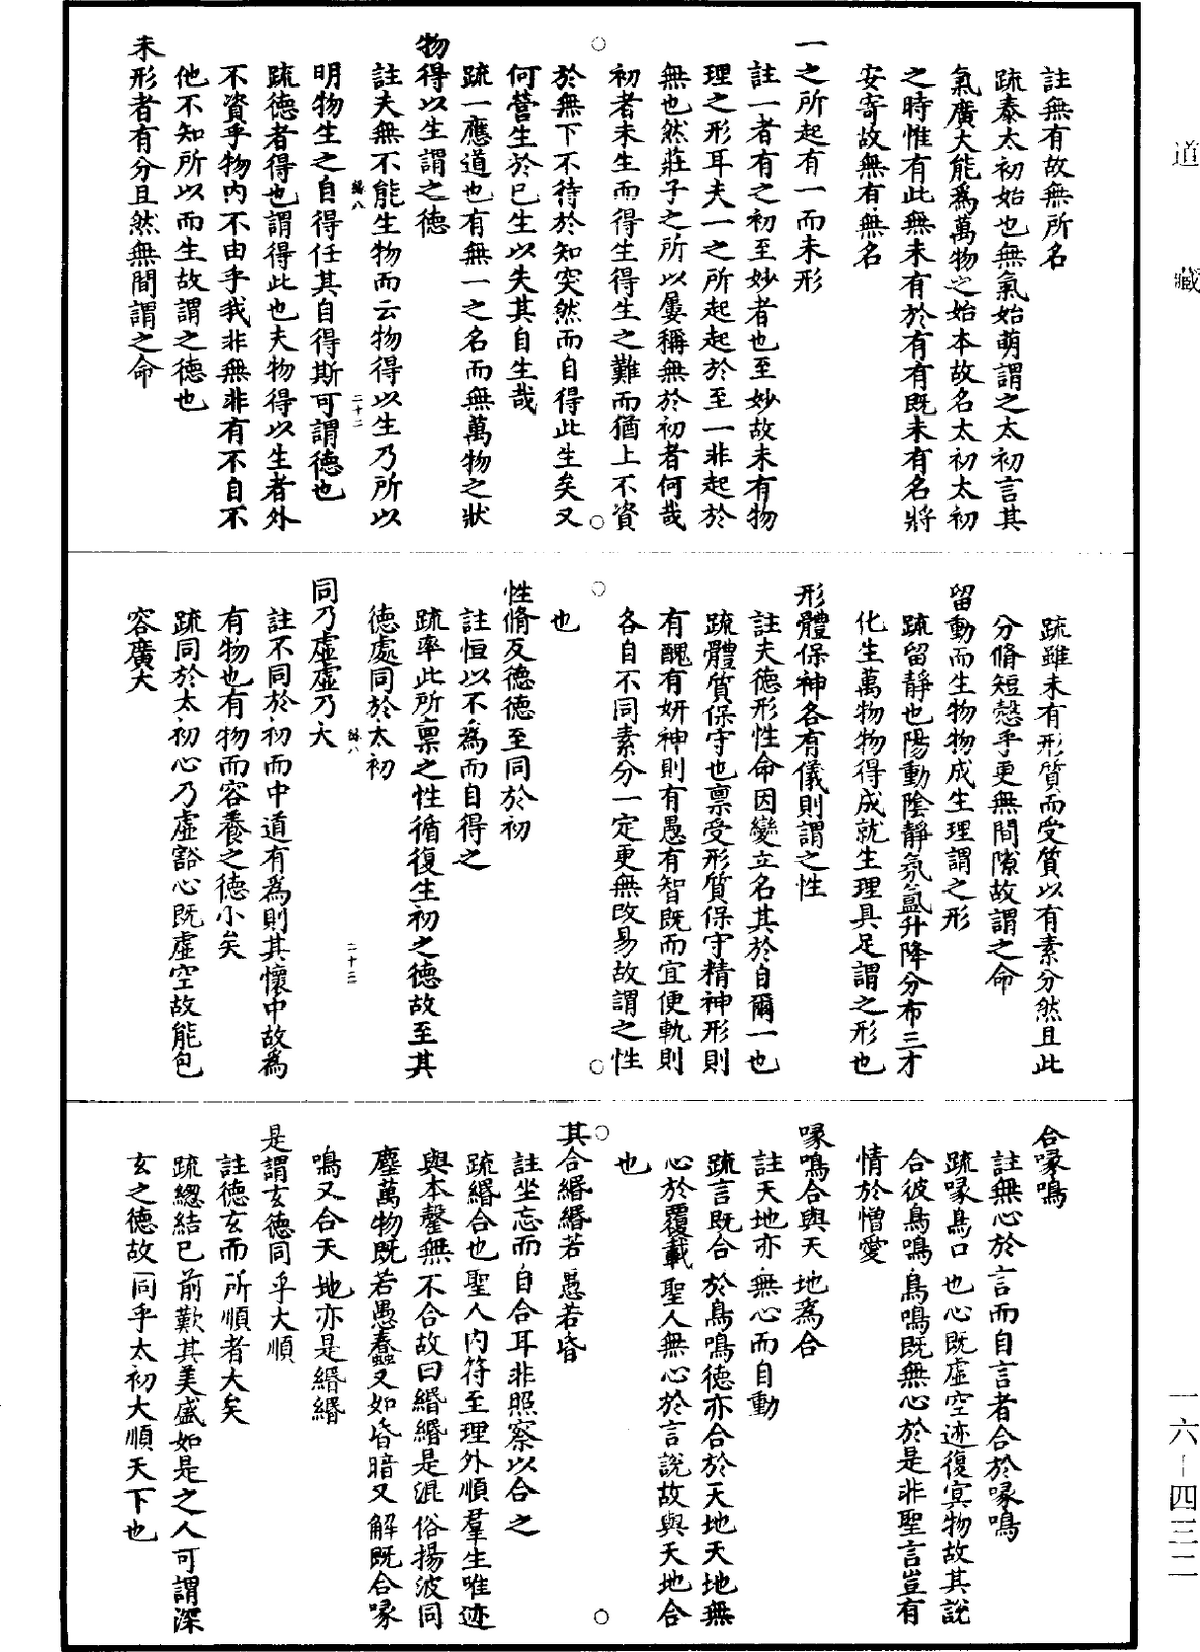 道藏
註無有故無所名
疏泰太初始也無氣始萌謂之太初言其
氣廣大能爲萬物之始本故名太初太初
之時惟有此無未有於有有既未有名將
安寄故無有無名
一之所起有一而未形
註一者有之初至妙者也至妙故未有物
理之形耳夫一之所起起於至一非起於
無也然莊子之所以屢稱無於初者何哉
初者未生而得生得生之難而猶上不資
於無下不待於知突然而自得此生矣又
何營生於已生以失其自生哉
疏一應道也有無一之名而無萬物之狀
物得以生謂之德
註夫無不能生物而云物得以生乃所以
明物生之自得任其自得斯可謂德也
疏德者得也謂得此也夫物得以生者外
不資乎物內不由乎我非無非有不自不
他不知所以而生故謂之德也
未形者有分且然無間謂之命
二十二
疏雖未有形質而受質以有素分然且此
分脩短愨乎更無間隙故謂之命
留動而生物物成生理謂之形
疏留靜也陽動陰靜氛氳升降分布三才
化生萬物物得成就生理具足謂之形也
形體保神各有儀則謂之性
註夫德形性命因變立名其於自爾一也
疏體質保守也禀受形質保守精神形則
有醜有妍神則有愚有智既而宜便軌則
各自不同素分一定更無改易故謂之性
也
性脩反德德至同於初
註恒以不爲而自得之
疏率此所禀之性循復生初之德故至其
德處同於太初
同乃虛虛乃大
註不同於初而中道有爲則其懷中故爲
有物也有物而容養之德小矣
疏同於太初心乃虛豁心既虛空故能包
容廣大
合喙鳴
註無心於言而自言者合於喙鳴
疏喙鳥口也心既虛空迹復冥物故其說
合彼鳥鳴鳥鳴既無心於是非聖言豈有
情於憎愛
喙鳴合與天地爲合
註天地亦無心而自動
疏言既合於鳥鳴德亦合於天地天地無
心於覆載聖人無心於言說故與天地合
也
其合緡緡若愚若昏
註坐忘而自合耳非照察以合之
疏緡合也聖人內符至理外順羣生唯迹
與本罄無不合故曰緡緡是混俗揚波同
塵萬物既若愚蠢又如昏暗又解既合喙
鳴又合天地亦是緡緡
是謂玄德同乎大順
註德玄而所順者大矣
疏總結已前歎其美盛如是之人可謂深
玄之德故同乎太初大順天下也
一六－四三二